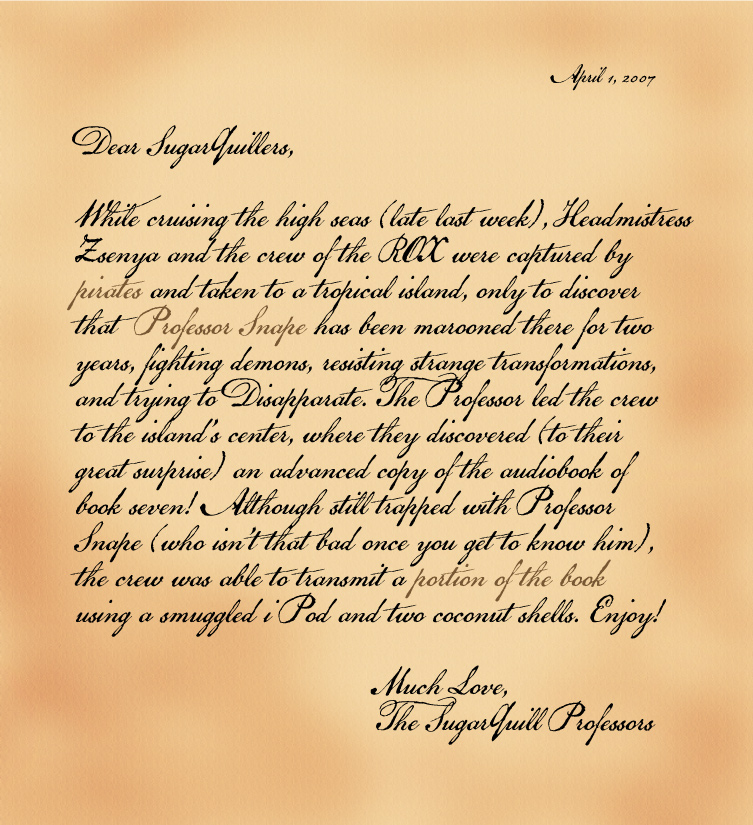 April 1, 2007
Dear SugarQuillers,
While cruising the high seas (late last week), Headmistress
Zsenya and the crew of the ROX were captured by
pirates and taken to a tropical island, only to discover
that Professor Snape has been marooned there for two
years, fighting demons, resisting strange transformations,
and trying to Disapparate. The Professor led the crew
to the island's center, where they discovered (to their
great surprise) an advanced copy of the audiobook of
book seven! Although still trapped with Professor
Snape (who isn't that bad once you get to know him),
the crew was able to transmit a portion of the book
using a smuggled iPod and two coconut shells. Enjoy!
Much Love,
The SugarQuill Professors